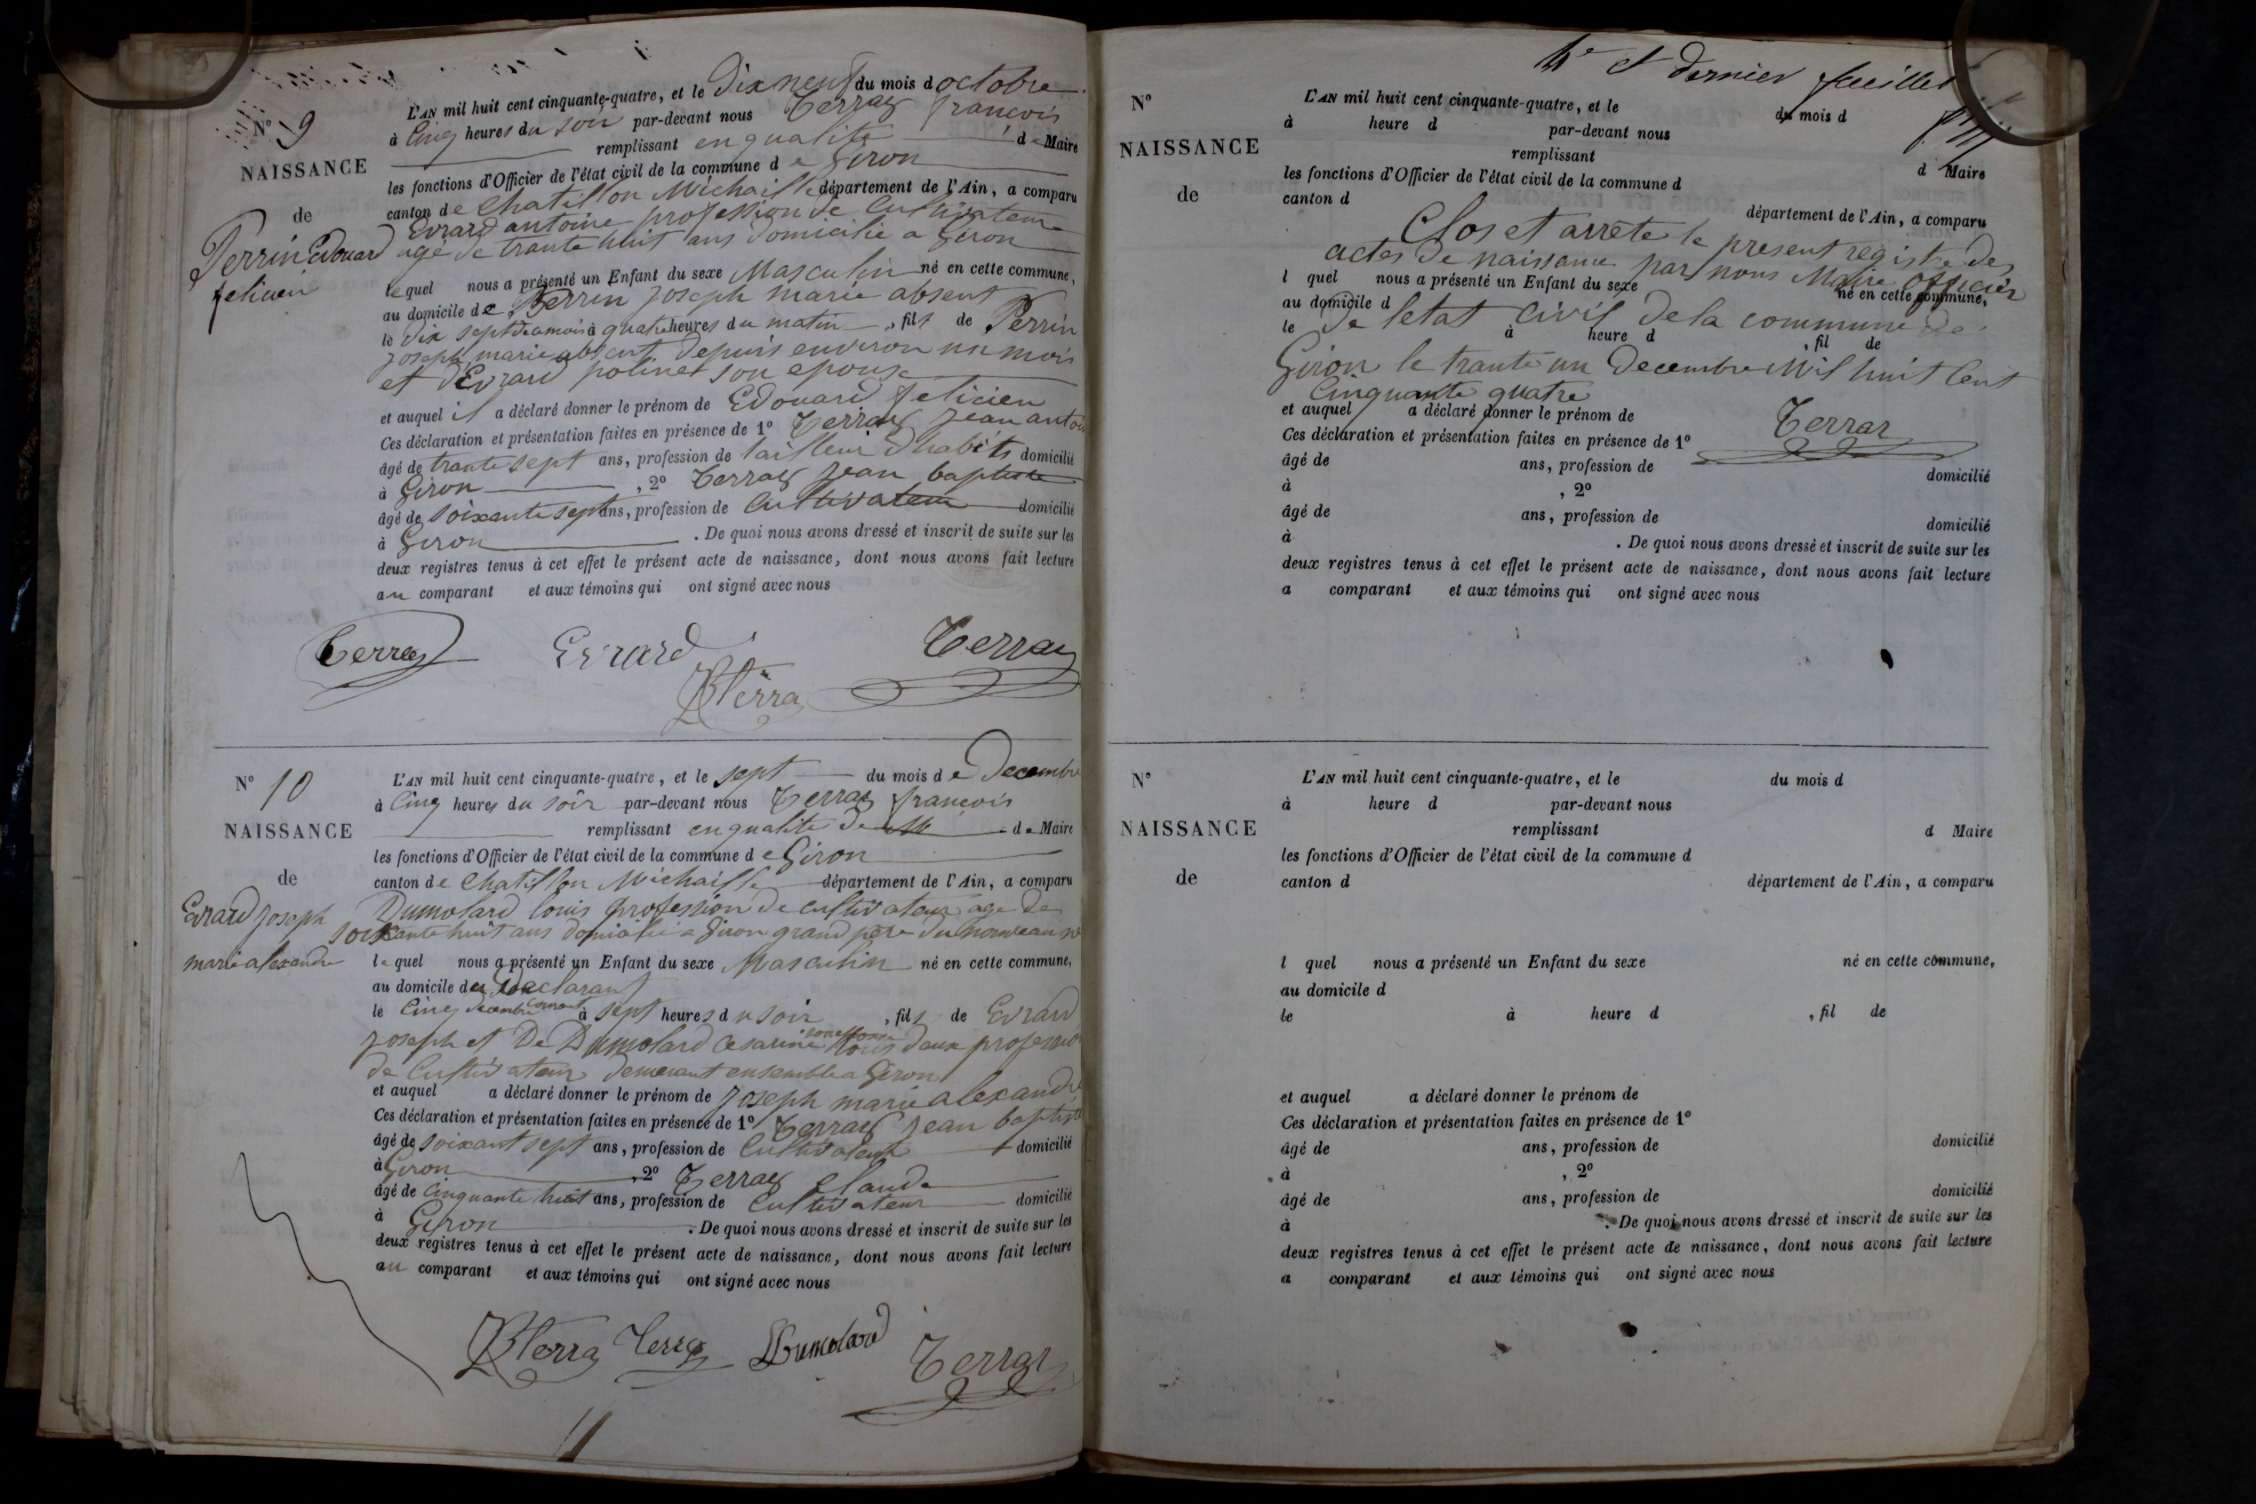 N° 9
NAISSANCE
de
Perrin Edouard
felicien
L'AN mil huit cent cinquante-quatre, et le Dix neuf du mois d octobre
à Cinq heures du soir par-devant nous Terraz francois
remplissant en qualité de Maire
les fonctions d'Officier de l'état civil de la commune de Giron
canton de Chatillon Michaille département de l'Ain, a comparu
Evrard antoine profession de Cultivateur
agé de trante huit ans Domicilié a Giron
lequel nous a présenté un Enfant du sexe Masculin né en cette commune,
au domicile de Perrin joseph marie absent
le dix sept du mois à quatre heures du matin, fils de Perrin
joseph marie absent Depuis environ un mois
et d'Evrard polinet son epouse
et auquel il a déclaré donner le prénom de Edouard felicien
Ces déclaration et présentation faites en présence de 1° Terraz jean antoi
âgé de trante sept ans, profession de tailleur d'habits domicilié
à Giron, 2° Terraz jean baptiste
âgé de soixante sept ans, profession de Cultivateur domicilié
à Giron. De quoi nous avons dressé et inscrit de suite sur les
deux registres tenus à cet effet le présent acte de naissance, dont nous avons fait lecture
au comparant et aux témoins qui ont signé avec nous
Terraz Evrard Terraz
JBterra
N° 10
NAISSANCE
de
Evrard joseph
marie alexandre
L'AN mil huit cent cinquante-quatre, et le sept du mois de Decembre
à Cinq heures du soir par-devant nous Terraz francois
remplissant en qualité de de Maire
les fonctions d'Officier de l'état civil de la commune de Giron
canton de Chatillon Michaille département de l'Ain, a comparu
Dumolard louis profession de cultivateur age de
soixante huit ans domicilié a Giron grand père du nouveau né
lequel nous a présenté un Enfant du sexe Masculin né en cette commune,
au domicile du Declarant
le Cinq decembre courant à sept heures du soir, fils de Evrard
joseph et De Dumolard Cesarine son epouse tous deux profession
de Cultivateur demeurant ensemble a Giron
et auquel a déclaré donner le prénom de joseph marie alexandre
Ces déclaration et présentation faites en présence de 1° Terraz jean baptiste
âgé de soixant sept ans, profession de Cultivateur domicilié
à Giron, 2° Terraz claude
âgé de Cinquante huit ans, profession de Cultivateur domicilié
à Giron. De quoi nous avons dressé et inscrit de suite sur les
deux registres tenus à cet effet le présent acte de naissance, dont nous avons fait lecture
au comparant et aux témoins qui ont signé avec nous
JBterra Terraz LDumolard Terraz
4e et dernier feuillet
N°
NAISSANCE
de
L'AN mil huit cent cinquante-quatre, et le du mois d
à heure d par-devant nous
remplissant d Maire
les fonctions d'Officier de l'état civil de la commune d
canton d département de l'Ain, a comparu
Clos et arrete le present registre des
actes de naissance par nous Maire officier
l quel nous a présenté un Enfant du sexe né en cette commune,
au domicile d
de letat Civil de la commune de
le à heure d, fil de
Giron le trante un Decembre Mil huit Cent
Cinquante quatre
et auquel a déclaré donner le prénom de
Terraz
Ces déclaration et présentation faites en présence de 1°
âgé de ans, profession de domicilié
à, 2°
âgé de ans, profession de domicilié
à. De quoi nous avons dressé et inscrit de suite sur les
deux registres tenus à cet effet le présent acte de naissance, dont nous avons fait lecture
a comparant et aux témoins qui ont signé avec nous
N°
NAISSANCE
de
L'AN mil huit cent cinquante-quatre, et le du mois d
à heure d par-devant nous
remplissant d Maire
les fonctions d'Officier de l'état civil de la commune d
canton d département de l'Ain, a comparu
l quel nous a présenté un Enfant du sexe né en cette commune,
au domicile d
le à heure d, fil de
et auquel a déclaré donner le prénom de
Ces déclaration et présentation faites en présence de 1°
âgé de ans, profession de domicilié
à, 2°
âgé de ans, profession de domicilié
à. De quoi nous avons dressé et inscrit de suite sur les
deux registres tenus à cet effet le présent acte de naissance, dont nous avons fait lecture
a comparant et aux témoins qui ont signé avec nous